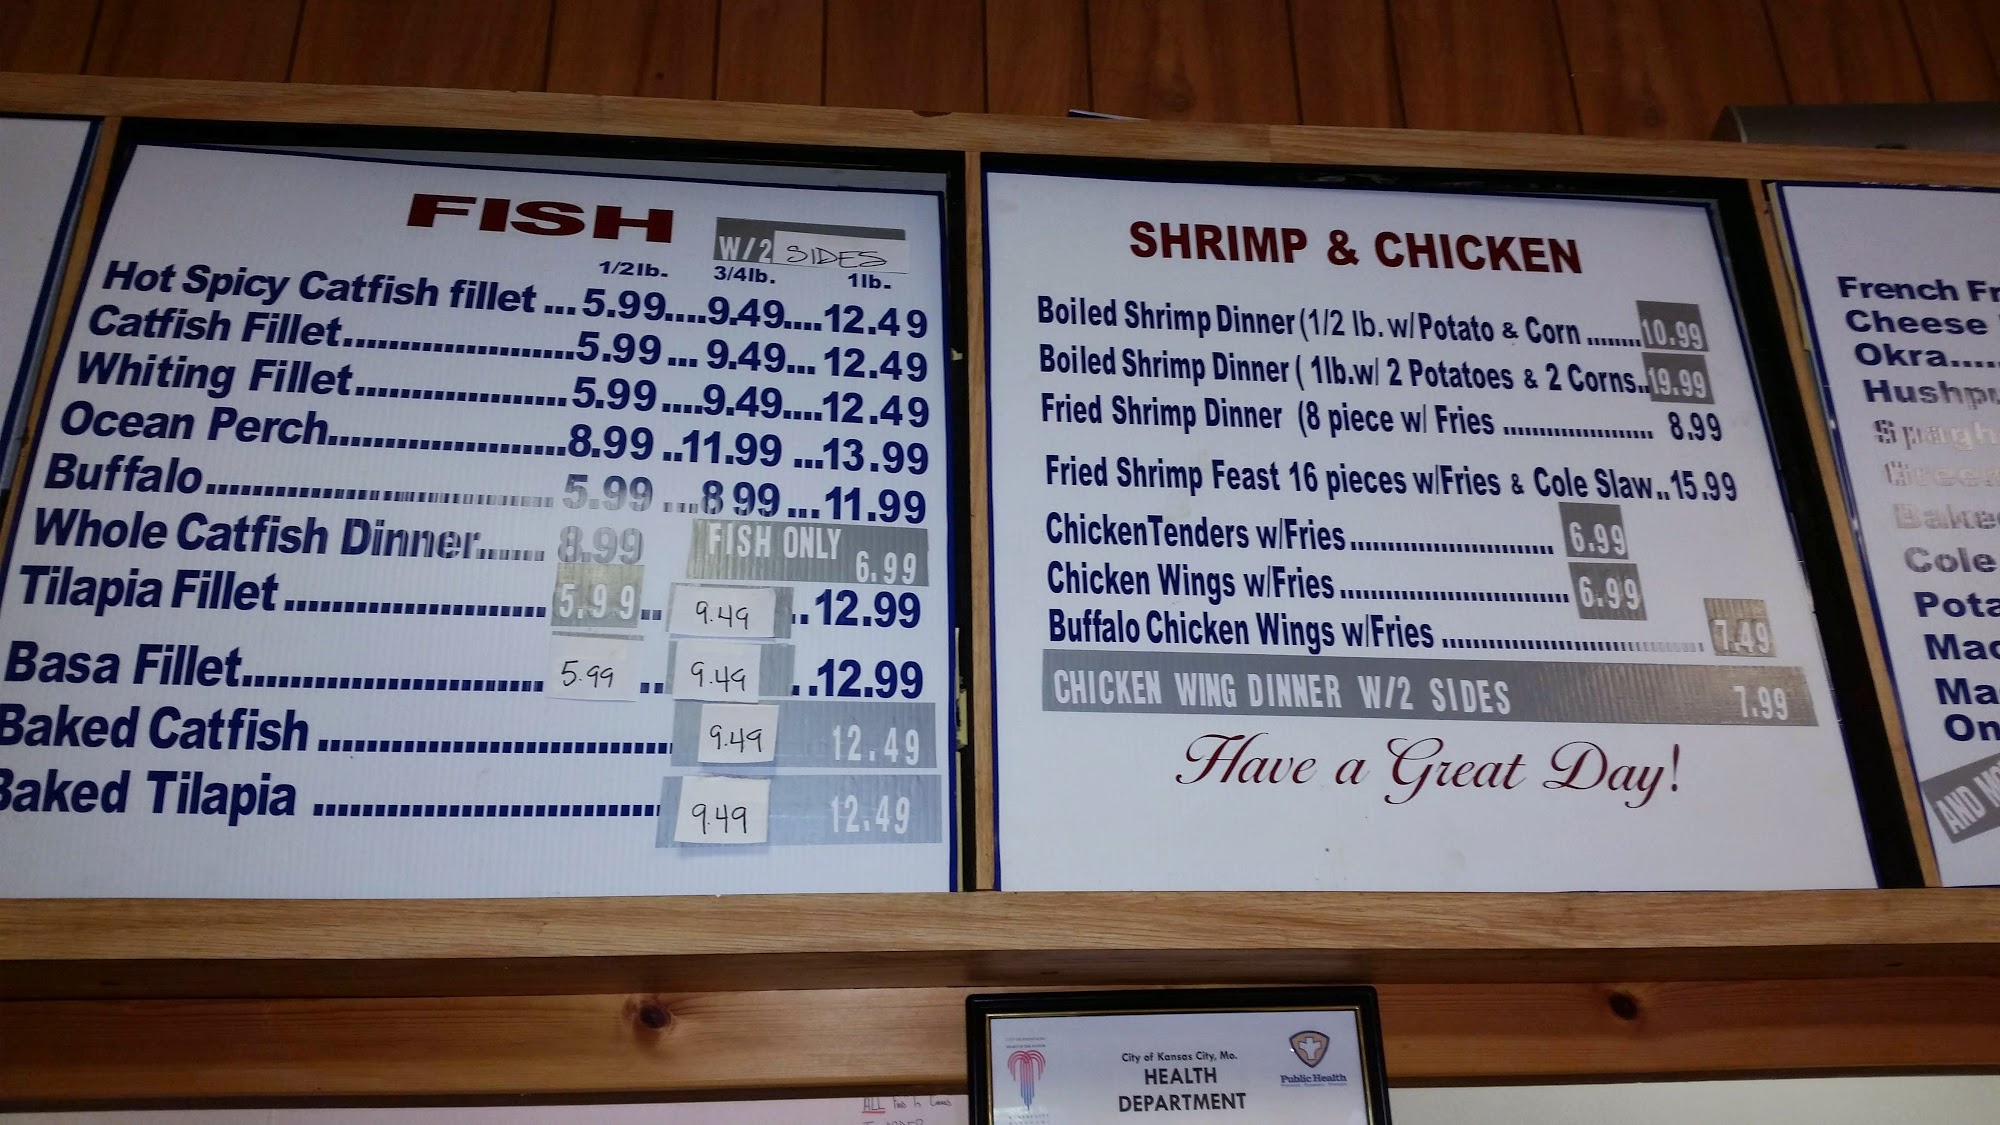 FISH
W/2 SIDES
1/2lb. 3/4lb. 1lb.
Hot Spicy Catfish fillet ...5.99....9.49....12.49
Catfish Fillet.......................5.99 ... 9.49... 12.49
Whiting Fillet.....................5.99 ....9.49....12.49
Ocean Perch........................8.99 ..11.99 ...13.99
Buffalo...................................5.99 ....8 99 ...11.99
Whole Catfish Dinner...... 8.99 FISH ONLY 6.99
Tilapia Fillet ..........................5.99.. 9.49 ..12.99
Basa Fillet.............................. 5.99 .. 9.49 ..12.99
Baked Catfish .................................. 9.49 12.49
Baked Tilapia ................................. 9.49 12.49
SHRIMP & CHICKEN
Boiled Shrimp Dinner (1/2 lb. w/ Potato & Corn ........10.99
Boiled Shrimp Dinner ( 1lb.w/ 2 Potatoes & 2 Corns..19.99
Fried Shrimp Dinner (8 piece w/ Fries ...................... 8.99
Fried Shrimp Feast 16 pieces w/Fries & Cole Slaw..15.99
ChickenTenders w/Fries.............................. 6.99
Chicken Wings w/Fries.................................. 6.99
Buffalo Chicken Wings w/Fries ...................................... 7.49
CHICKEN WING DINNER W/2 SIDES 7.99
Have a Great Day!
French Fr
Cheese
Okra.....
Hushpu
Spagh
Green
Bake
Cole
Pota
Mac
Ma
On
AND MO
City of Kansas City, Mo.
HEALTH
DEPARTMENT
Public Health
ALL